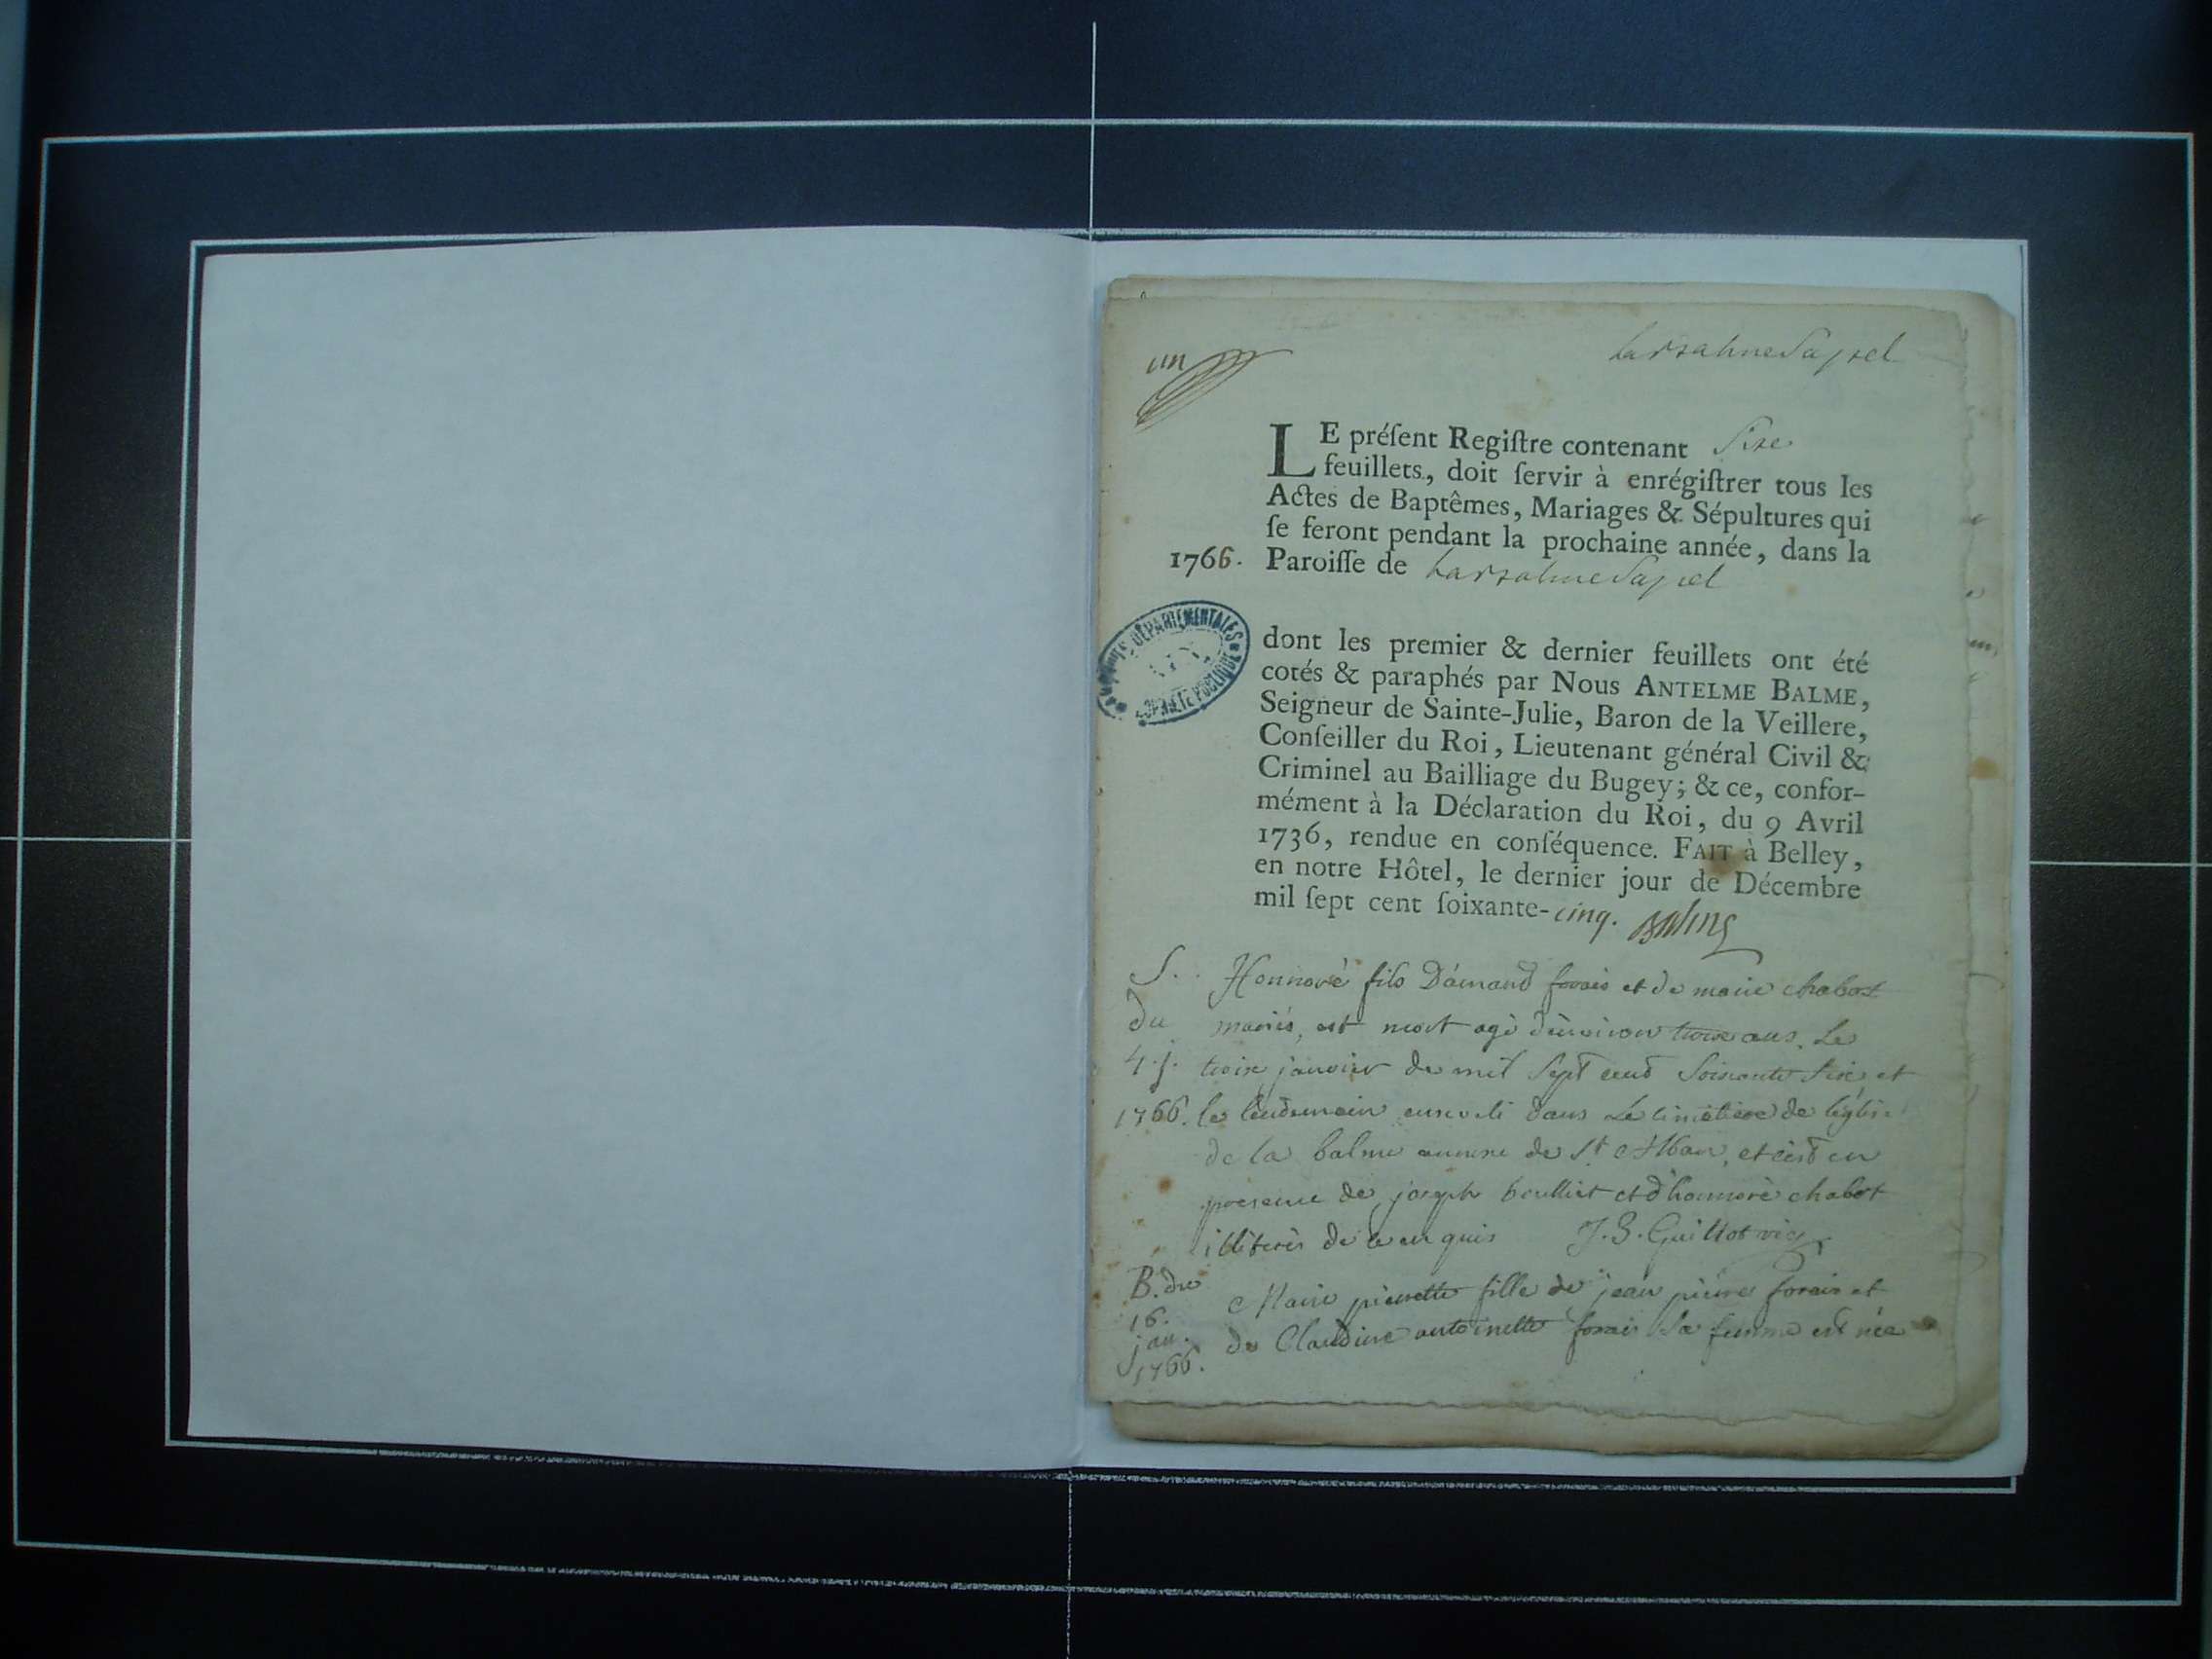 un
LabalmeSapel
LE préſent Regiſtre contenant Sixe
feuillets, doit ſervir à enrégiſtrer tous les
Actes de Baptêmes, Mariages & Sépultures qui
ſe feront pendant la prochaine année, dans la
1766. Paroiſſe de LabalmeSapel
DÉPARTEMENTALES
PROPRIÉTÉ PUBLIQUE
dont les premier & dernier feuillets ont été
cotés & paraphés par Nous ANTELME BALME,
Seigneur de Sainte-Julie, Baron de la Veillere,
Conſeiller du Roi, Lieutenant général Civil &
Criminel au Bailliage du Bugey; & ce, confor-
mément à la Déclaration du Roi, du 9 Avril
1736, rendue en conſéquence. FAIT à Belley,
en notre Hôtel, le dernier jour de Décembre
mil ſept cent ſoixante-cinq. Balme
S. Honnoré fils D'amand forais et de marie chabot
du mariés, est mort agé d'environ trois ans. Le
4. j. troix janvier de mil Sept cent Soixante Six et
1766. le lendemain enseveli dans Le cimetiere de leglise
de la balme annexe de St Alban, et c'est en
presence de joseph boulliet et d'honnorè chabot
illiterès de ce enquis J. B. Guillot vic.
B. du Marie pierrette fille de jean pierre forais et
16. jan. de Claudine antoinette forais Sa femme est née
1766.